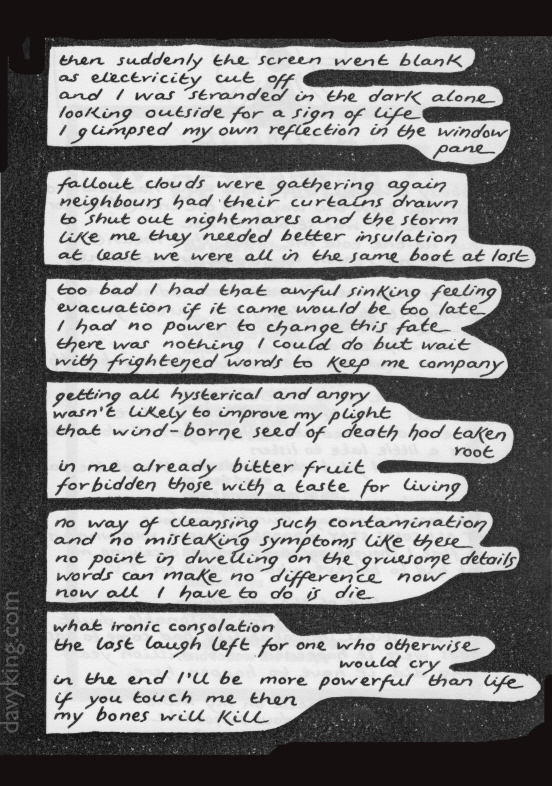 then suddenly the screen went blank
as electricity cut off
and I was stranded in the dark alone
looking outside for a sign of life
I glimpsed my own reflection in the window
pane
fallout clouds were gathering again
neighbours had their curtains drawn
to shut out nightmares and the storm
like me they needed better insulation
at least we were all in the same boat at last
too bad I had that awful sinking feeling
evacuation if it came would be too late
I had no power to change this fate
there was nothing I could do but wait
with frightened words to keep me company
getting all hysterical and angry
wasn't likely to improve my plight
that wind-borne seed of death had taken
root
in me already bitter fruit
forbidden those with a taste for living
no way of cleansing such contamination
and no mistaking symptoms like these
no point in dwelling on the gruesome details
words can make no difference now
now all I have to do is die
what ironic consolation
the last laugh left for one who otherwise
would cry
in the end I'll be more powerful than life
if you touch me then
my bones will kill
davyking.com